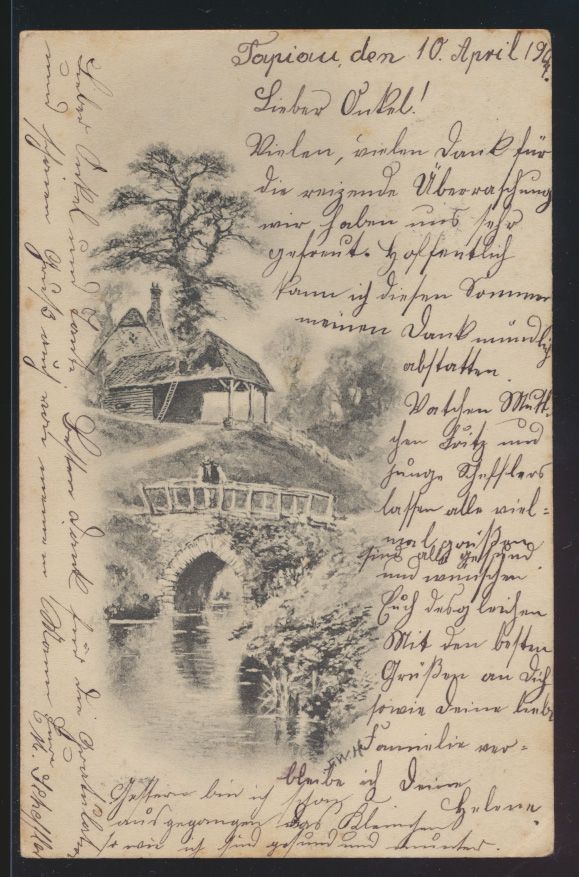 Tapiau, den 10. April 190
Lieber Onkel!
Vielen, vielen Dank für
die reizende Überraschung
wir haben uns sehr
gefreut. Hoffentlich
kann ich diesen Sommer
meinen Dank mündlich
abstatten.
Vatchen Mutt-
chen Fritz und
Junge Schefflers
lassen alle viel-
mal grüßen
sind alle gesund
und wünschen
Euch desgleichen
Mit den besten
Grüßen an Dich
sowie Deine liebe
Famielie ver-
bleibe ich Deine
Helene.
Gestern bin ich schon
ausgegangen das Kleinchen
so wie ich sind gesund und munter.
Lieber Onkel und Tante Besten Dank für die Gratulation
und Gruß auch von meinem Mann
M. Scheffler
F.W.H.